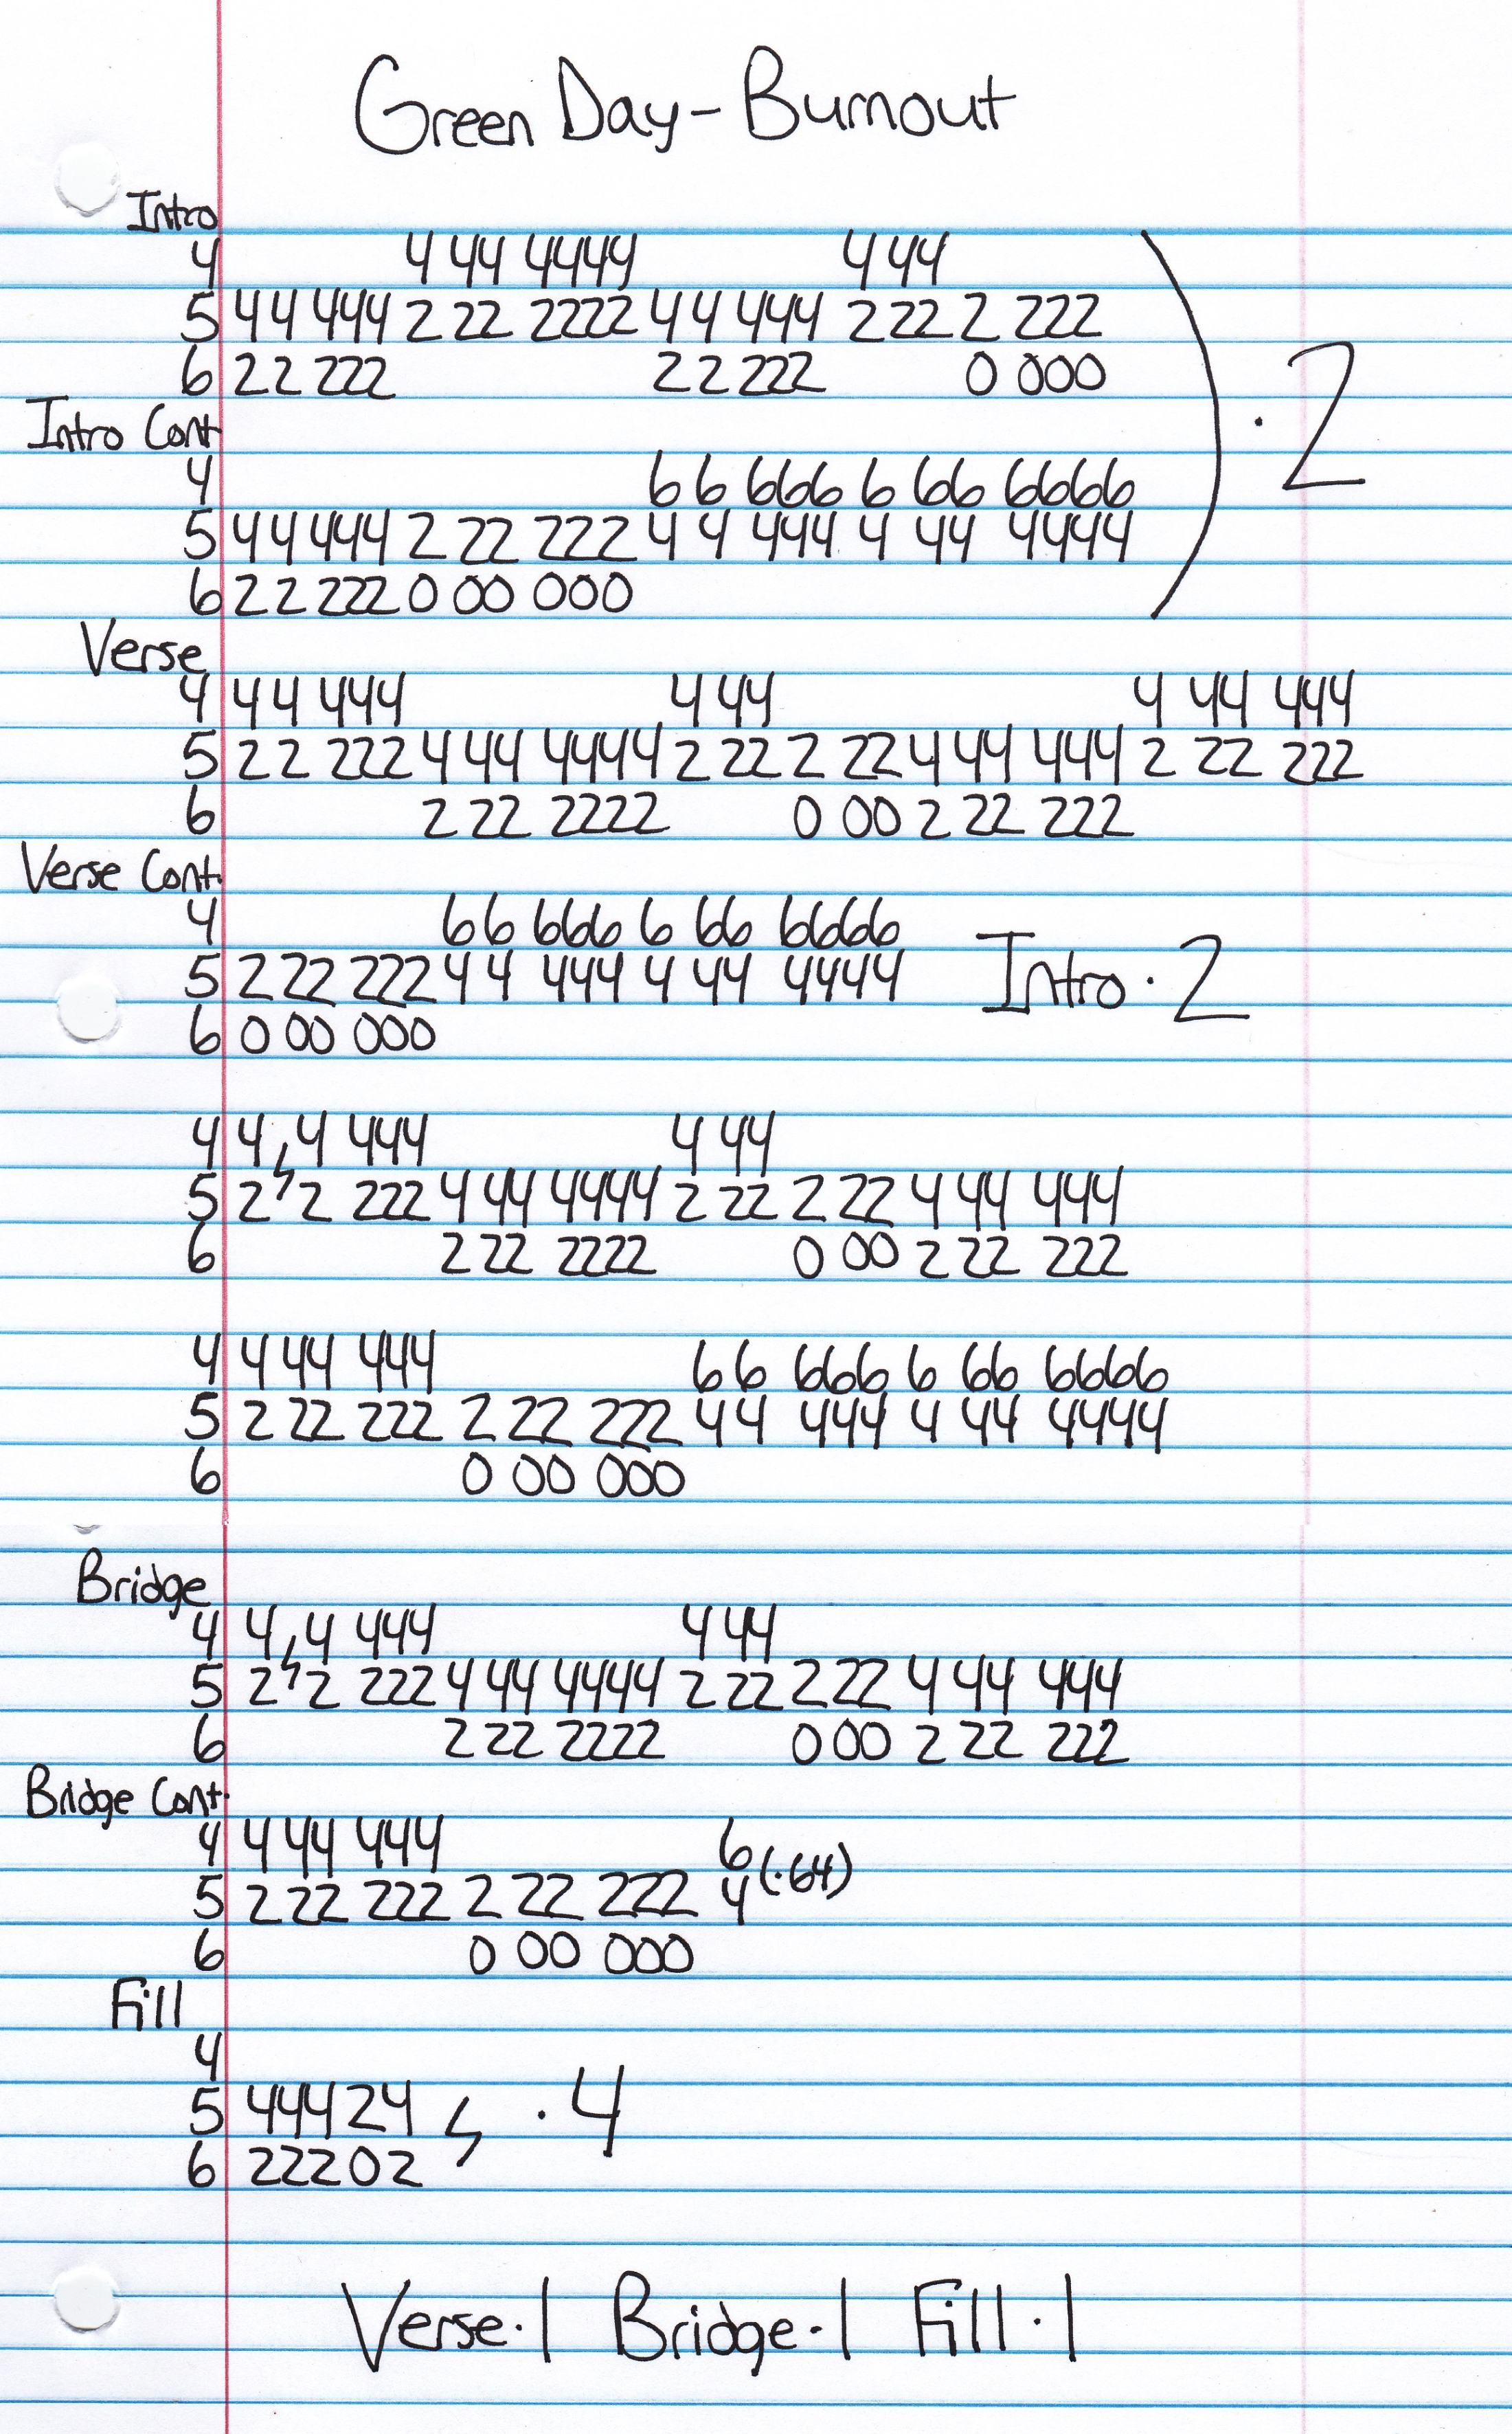 Green Day - Burnout
Intro
4 4 44 4444 4 44
5 44 444 2 22 2222 44 444 2 22 2 222
6 22 222 22 222 0 000
· 2
Intro Cont
4 66 666 6 66 6666
5 44 444 2 22 222 44 444 4 44 4444
6 22 222 0 00 000
Verse
4 44 444 4 44 4 44 444
5 22 222 4 44 4444 2 22 2 22 4 44 444 2 22 222
6 2 22 2222 0 00 2 22 222
Verse Cont.
4 66 666 6 66 6666
5 2 22 222 44 444 4 44 4444
6 0 00 000
Intro · 2
4 4 4 444 4 44
5 2 2 222 4 44 4444 2 22 2 22 4 44 444
6 2 22 2222 0 00 2 22 222
4 4 44 444 66 666 6 66 6666
5 2 22 222 2 22 222 44 444 4 44 4444
6 0 00 000
Bridge
4 4 4 444 4 44
5 2 2 222 4 44 4444 2 22 2 22 4 44 444
6 2 22 2222 0 00 2 22 222
Bridge Cont.
4 4 44 444 6
5 2 22 222 2 22 222 4 (·64)
6 0 00 000
Fill
4
5 44424 · 4
6 22202
Verse·1 Bridge·1 Fill·1